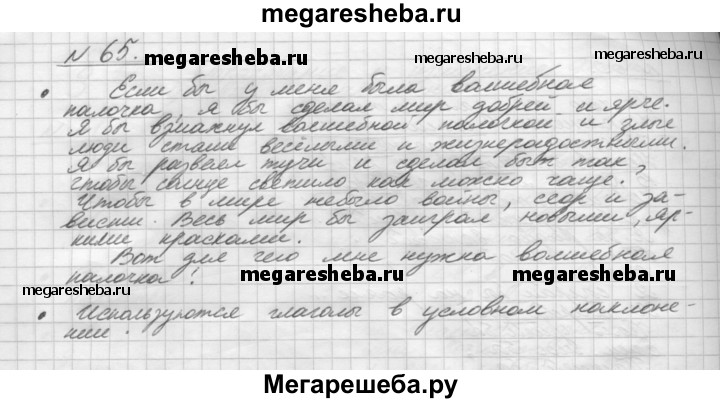 megaresheba.ru
№ 65.
megaresheba.ru
megaresheba.ru
• Если бы у меня была волшебная
палочка, я бы сделал мир добрей и ярче.
Я бы взмахнул волшебной палочкой и злые
люди стали весёлыми и жизнерадостными.
Я бы развеял тучи и сделал бы так,
чтобы солнце светило как можно чаще.
Чтобы в мире небыло войны, ссор и за-
висти. Весь мир бы заиграл новыми, яр-
кими красками.
Вот для чего мне нужна волшебная
палочка!
megaresheba.ru
megaresheba.ru
megaresheba.ru
• Используются глаголы в условном наклоне-
нии.
Мегарешеба.ру